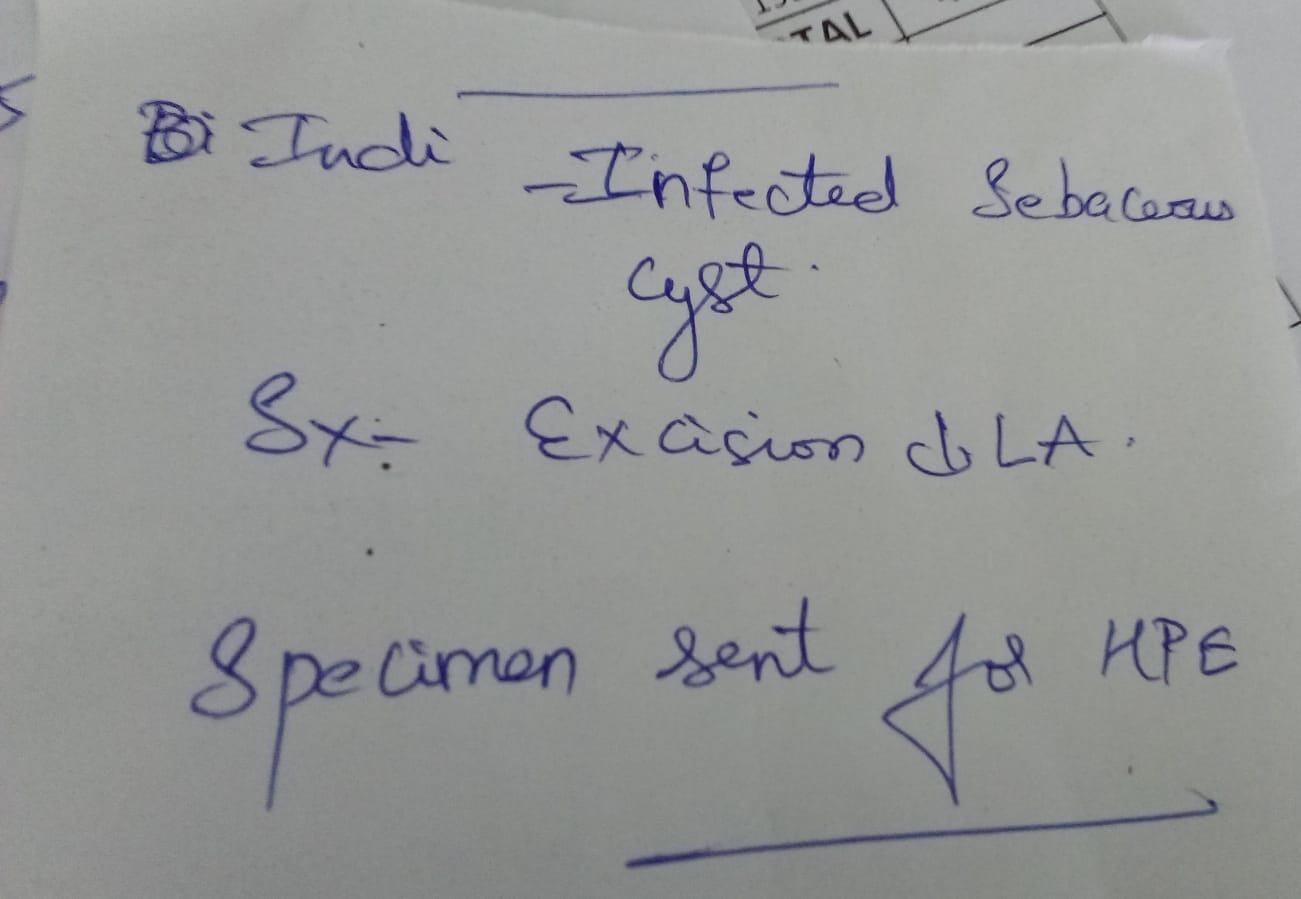 TAL
Indi - Infected Sebaceous
cyst.
Sx:- Excision LA.
Specimen sent for HPE